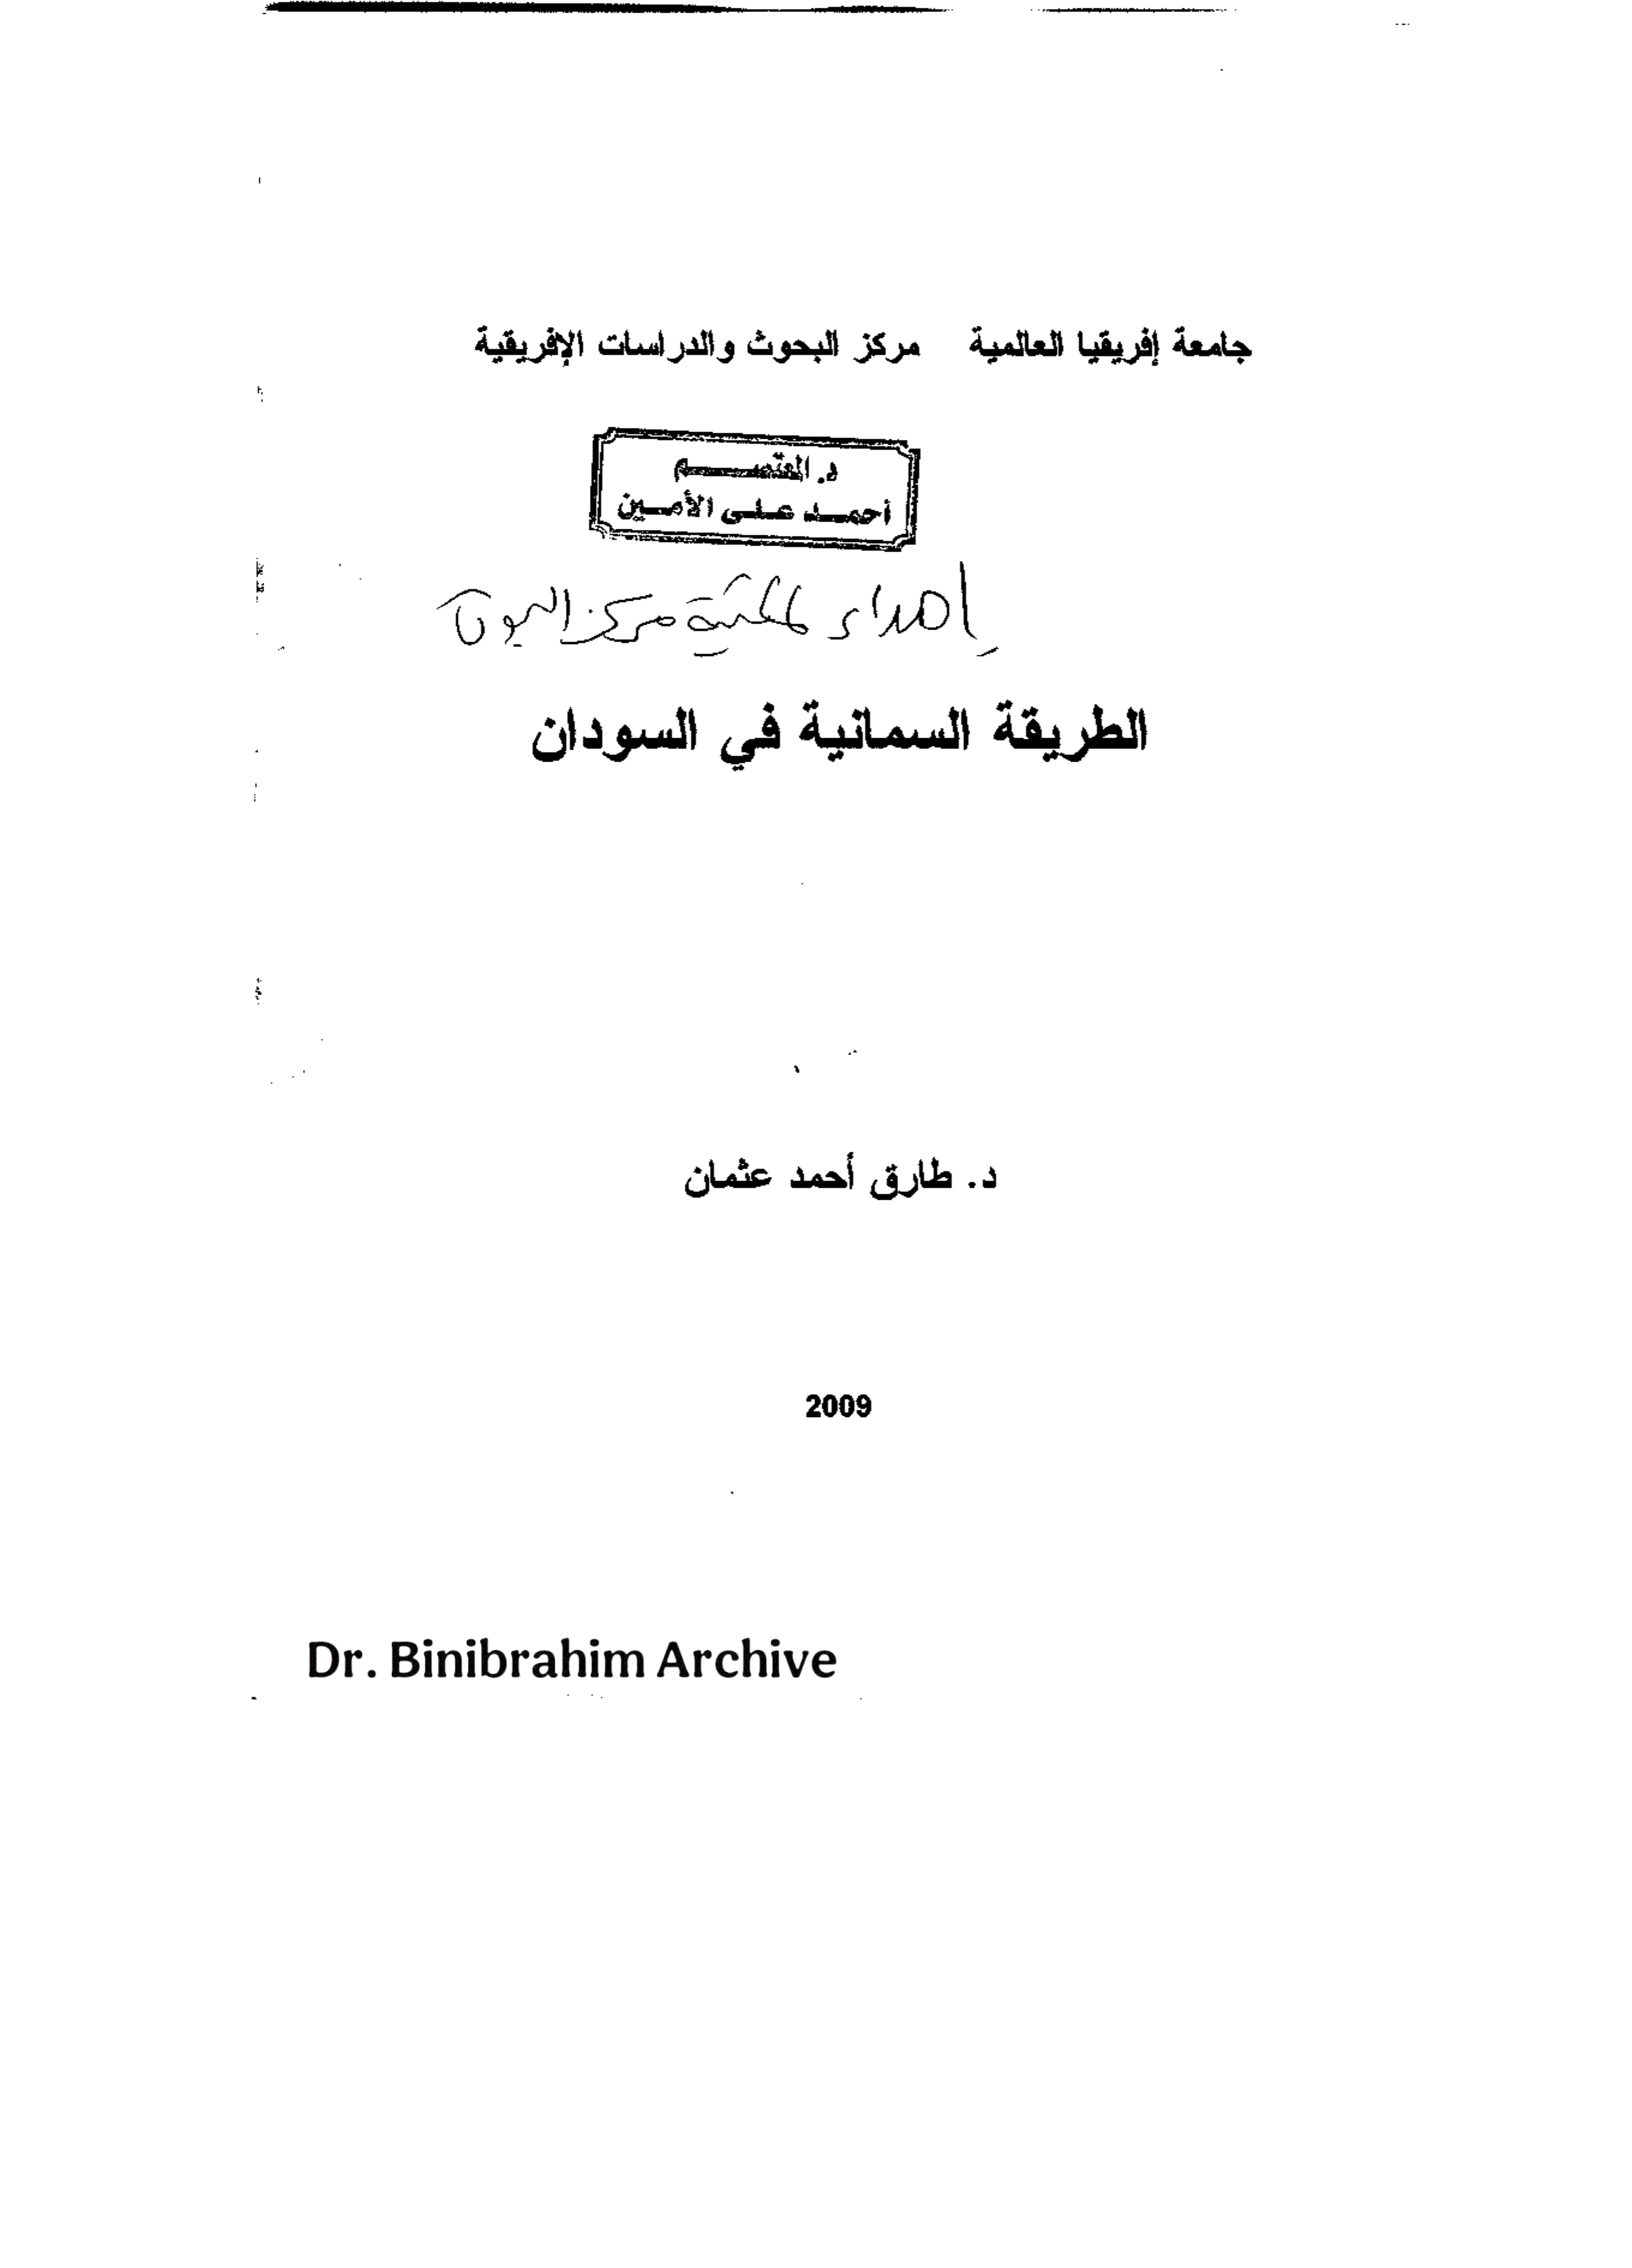 جامعة إفريقيا العالمية مركز البحوث والدراسات الإفريقية
د. المعتصم
أحمد على الأمين
إهداء لمكتبة مركز البحوث
الطريقة السمانية في السودان
د. طارق أحمد عثمان
2009
Dr. Binibrahim Archive